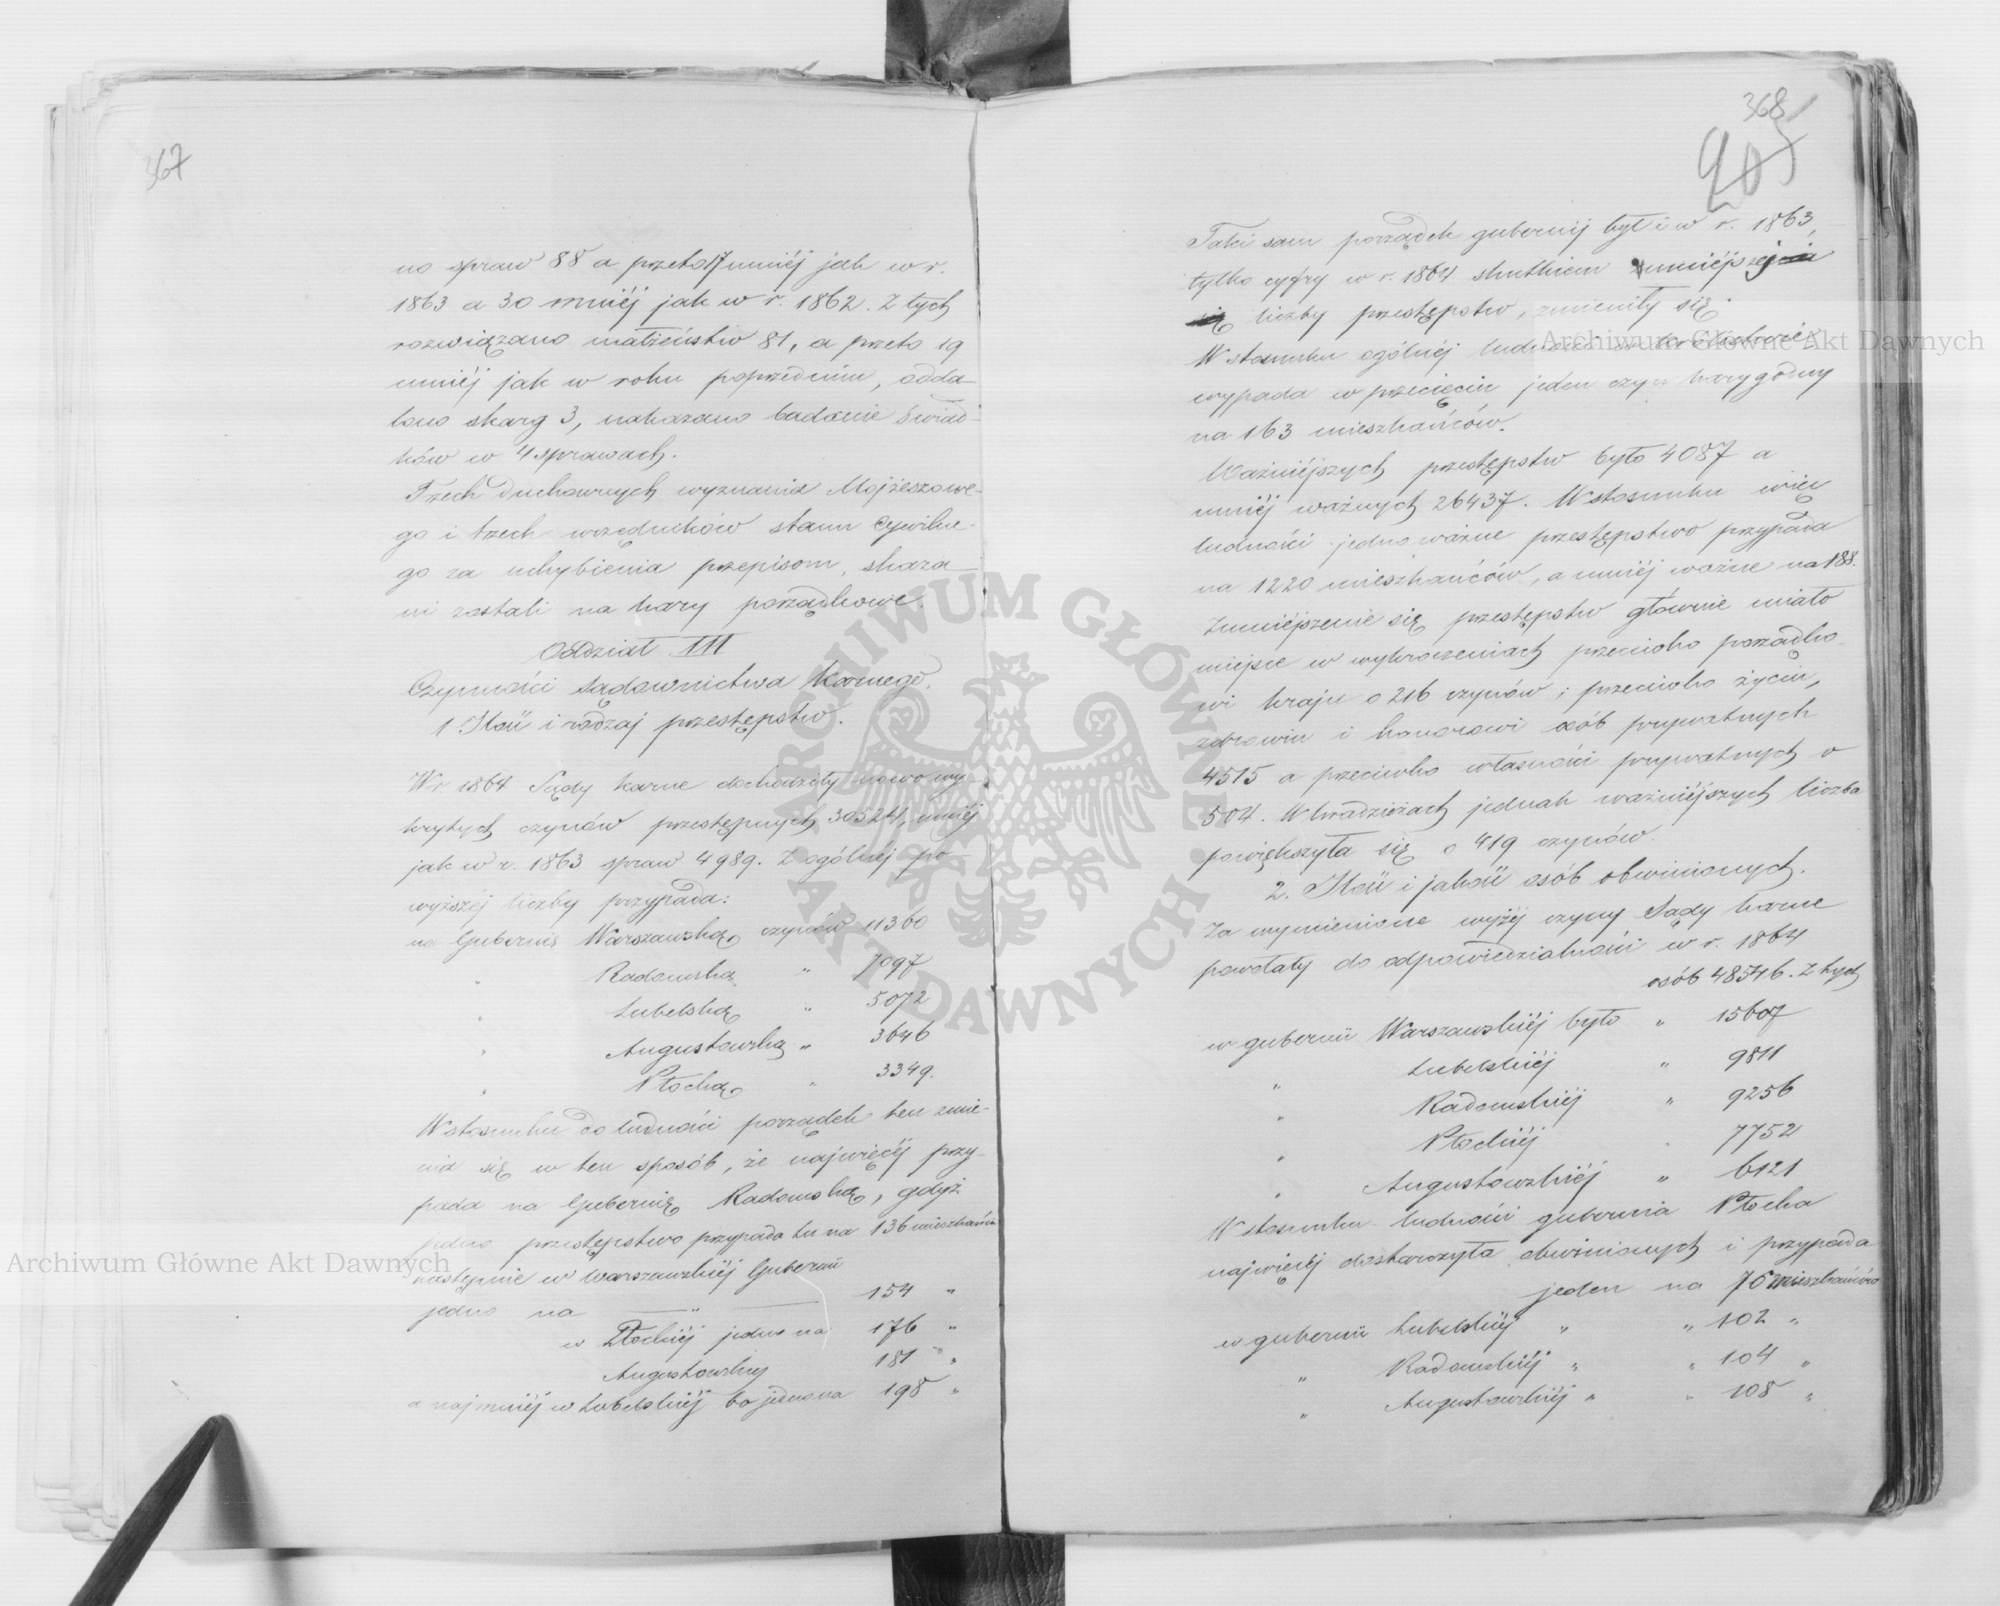 367
no spraw 88 a przeto 17 mniéj jak w r.
1863 a 30 mniéj jak w r. 1862. Z tych
rozwiązano małżeństw 81, a przeto 19
mniéj jak w roku poprzednim, odda-
lono skarg 3, nakazano badanie świad-
ków w 4 sprawach.
Trzech duchownych wyznania Mojżeszowe-
go i trzech urzędników stanu cywilne-
go za uchybienia przepisom, skaza-
ni zostali na kary porządkowe.
Oddział III
Czynności Sądownictwa Karnego.
1 Ilość i rodzaj przestępstw.
W r. 1864 Sądy karne dochodziły nowo wy-
krytych czynów przestępnych 30524, mniéj
jak w r. 1863 spraw 4989. Z ogólnéj po-
wyższéj liczby przypada:
na Gubernię Warszawską czynów 11360
" Radomską " 7097
" Lubelską " 5072
" Augustowską " 3646
" Płocką " 3349.
W stosunku do ludności porządek ten zmie-
nia się w ten sposób, że najwięcéj przy-
pada na Gubernię Radomską, gdyż
jedno przestępstwo przypada tu na 136 mieszkańców
następnie w Warszawskiéj Gubernii
jedno na — " — 154 "
w Płockiéj jedno na 176 "
Augustowskiej 181 "
a najmniéj w Lubelskiéj bo jedno na 198 "
368
205
Taki sam porządek gubernij był i w r. 1863,
tylko cyfry w r. 1864 skutkiem zmniejszej
liczby przestępstw, zmieniły się.
W stosunku ogólnéj ludności w Królestwie,
wypada w przecięciu jeden czyn karygodny
na 163 mieszkańców.
Ważniéjszych przestępstw było 4087 a
mniéj ważnych 26437. W stosunku więc
ludności jedno ważne przestępstwo przypada
na 1220 mieszkańców, a mniéj ważne na 188.
Zmniéjszenie się przestępstw głównie miało
miejsce w wykroczeniach przeciwko porządko-
wi kraju o 216 czynów; przeciwko życiu,
zdrowiu i honorowi osób prywatnych
4515 a przeciwko własności prywatnych o
504. W kradzieżach jednak ważniéjszych liczba
powiększyła się o 419 czynów.
2. Ilość i jakość osób obwinionych.
Za wymienione wyżéj czyny Sądy karne
powołały do odpowiedzialności w r. 1864
osób 48546. Z tych
w gubernii Warszawskiéj było " 15607
" Lubelskiéj " 9811
" Radomskiéj " 9256
" Płockiéj " 7752
" Augustowskiéj " 6121
W stosunku ludności gubernia Płocka
najwięcéj dostarczyła obwinionych i przypada
jeden na 76 mieszkańców
w gubernii Lubelskiéj " " 102 "
" Radomskiéj " " 104 "
" Augustowskiéj " " 108 "
Archiwum Główne Akt Dawnych
Archiwum Główne Akt Dawnych
Archiwum Główne Akt Dawnych
ARCHIWUM GŁÓWNE AKT DAWNYCH